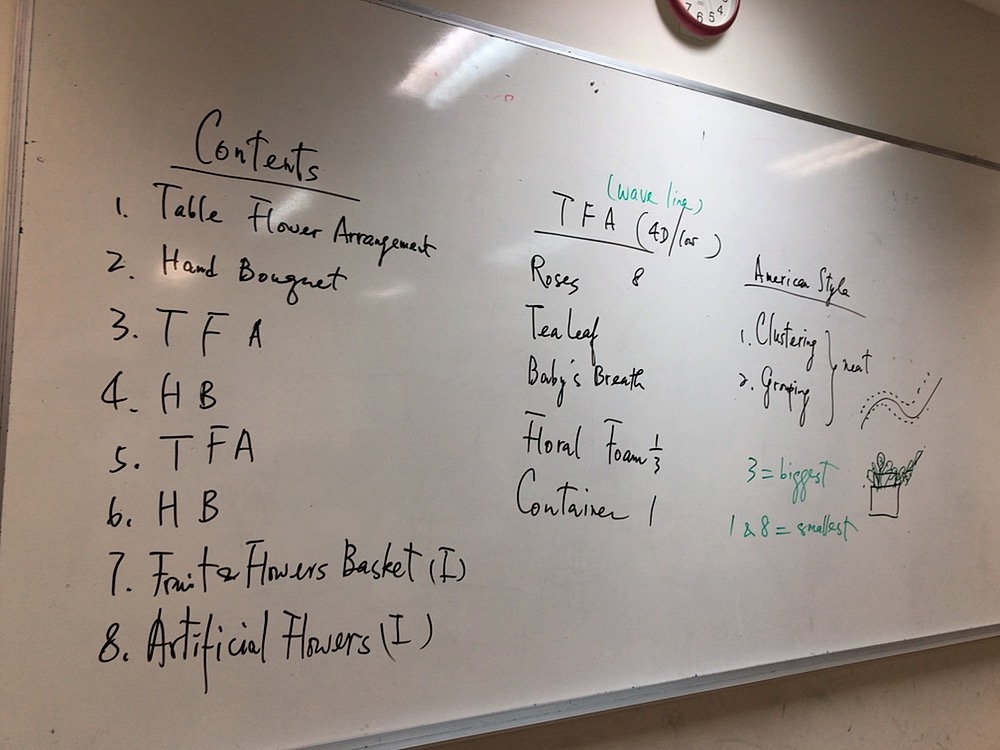 Contents
1. Table Flower Arrangement
2. Hand Bouquet
3. T F A
4. H B
5. T F A
6. H B
7. Fruit & Flowers Basket (I)
8. Artificial Flowers (I)
(wave line)
T F A (4D/low)
Roses 8
Tea Leaf
Baby's Breath
Floral Foam 1/3
Container 1
American Style
1. Clustering
2. Grouping
neat
3 = biggest
1 & 8 = smallest
7 6 5 4